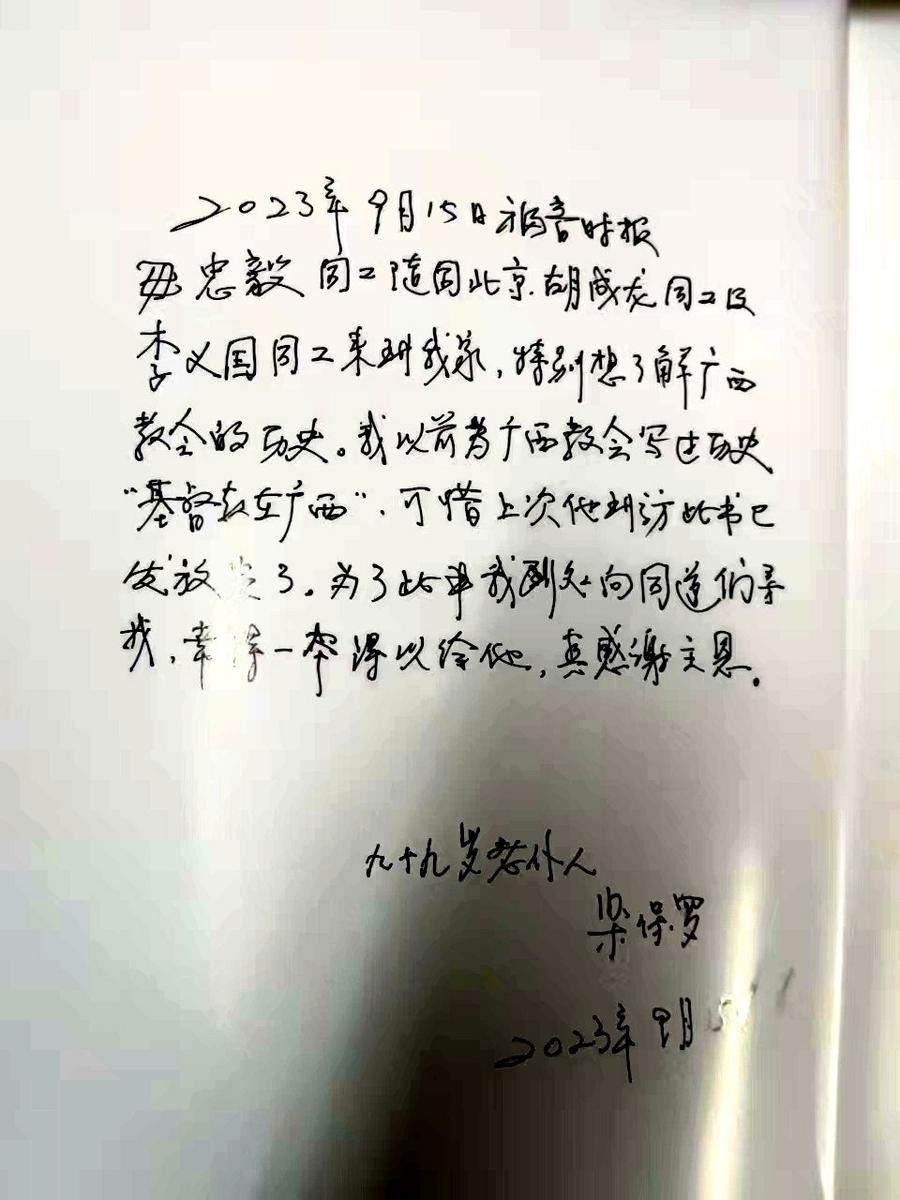 2023年9月15日福音时报
毋忠毅同工随同北京胡成龙同工及
李义国同工来到我家，特别想了解广西
教会的历史。我以前为广西教会写过历史
“基督教在广西”，可惜上次他到访此书已
发放完了。为了此事我到处向同道们寻
找，幸得一本得以给他，真感谢主恩。
九十九岁老仆人
梁保罗
2023年9月15日